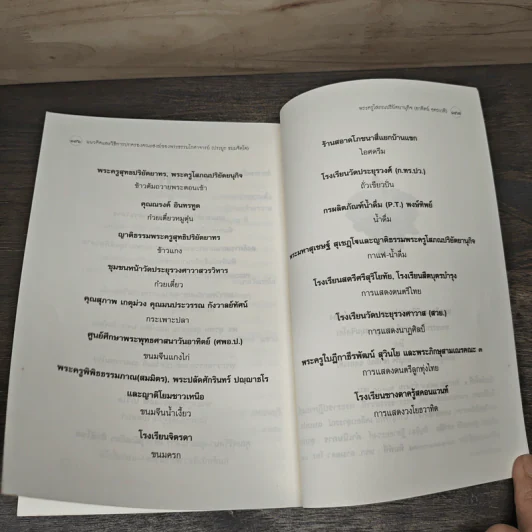 พระครูสุทธปริยัยาทร, พระครูโสภณปริยัตยานุกิจ
ข้าวต้มถวายพระตอนเช้า
คุณณรงค์ อินทรทูต
ก๋วยเตี๋ยวหมูตุ๋น
ญาติธรรมพระครูสุทธิปริยัยาทร
ข้าวแกง
ชุมชนหน้าวัดประยุรวงศาวาสวรวิหาร
ก๋วยเตี๋ยว
คุณสุภาพ เกตุม่วง คุณมนประวรรณ กังวาลย์ทัศน์
กระเพาะปลา
ศูนย์ศึกษาพระพุทธศาสนาวันอาทิตย์ (ศพอ.ป.)
ขนมจีนแกงไก่
พระครูพิพิธธรรมภาณ(สมมิตร), พระปลัดศักรินทร์ ปญฺญาธโร
และญาติโยมชาวเหนือ
ขนมจีนน้ำเงี้ยว
โรงเรียนจิตรดา
ขนมครก
ร้านสอาดโภชนาสี่แยกบ้านแขก
ไอศครีม
โรงเรียนวัดประยุรวงศ์ (ก.ทร.ปว.)
ถั่วเขียวปั่น
กรมผลิตภัณฑ์น้ำดื่ม (P.T.) พงษ์ทิพย์
น้ำดื่ม
พระมหาสุเชษฐ์ สุเชฏฺโฐและญาติธรรมพระครูโสภณปริยัตยานุกิจ
กาแฟ-น้ำดื่ม
โรงเรียนสตรีศรีสุริโยทัย, โรงเรียนสีตบุตรบำรุง
การแสดงดนตรีไทย
โรงเรียนวัดประยุรวงศาวาส (สวย.)
การแสดงนาฏศิลป์
พระครูใบฎีกาธีรพัฒน์ สุวินโย และพระภิกษุสามเณรคณะ ๓
การแสดงดนตรีลูกทุ่งไทย
โรงเรียนซางตาครู้สคอนแวนท์
การแสดงวงโยธวาทิต